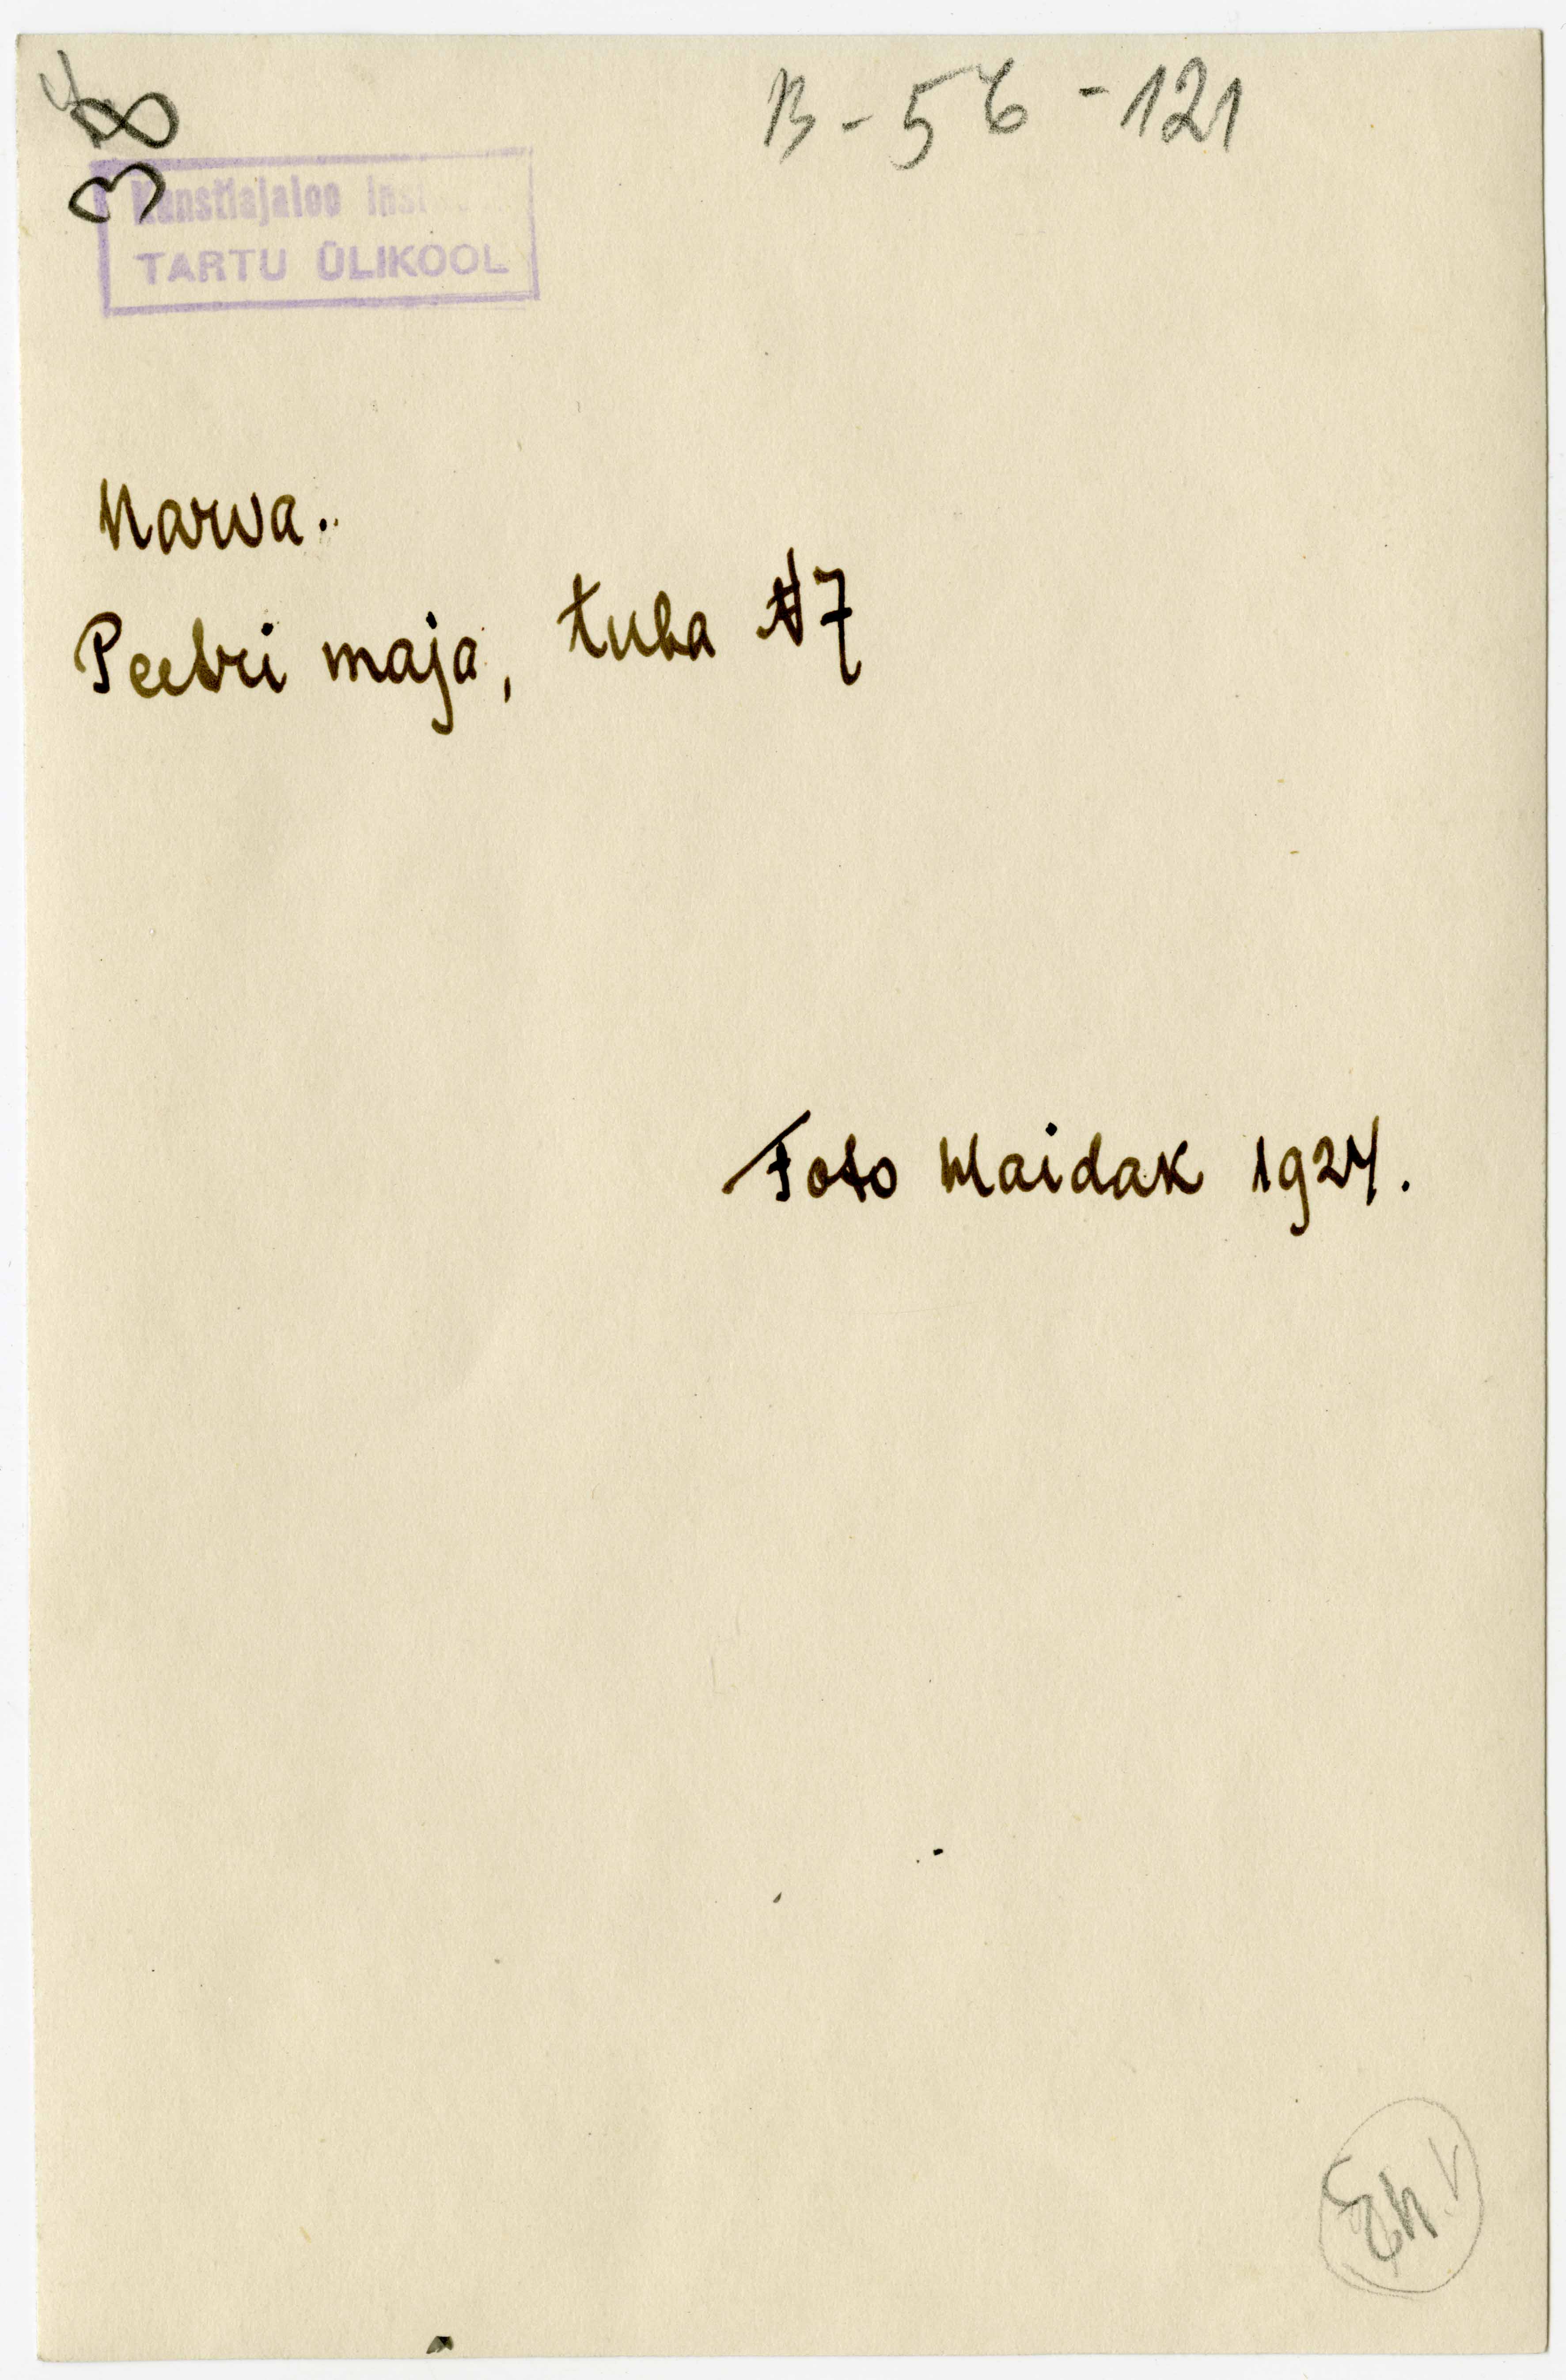 B-56-121
38
Kunstiajaloo Inst
TARTU ÜLIKOOL
Narva.
Peetri maja, tuba №7
Foto Maidak 1924.